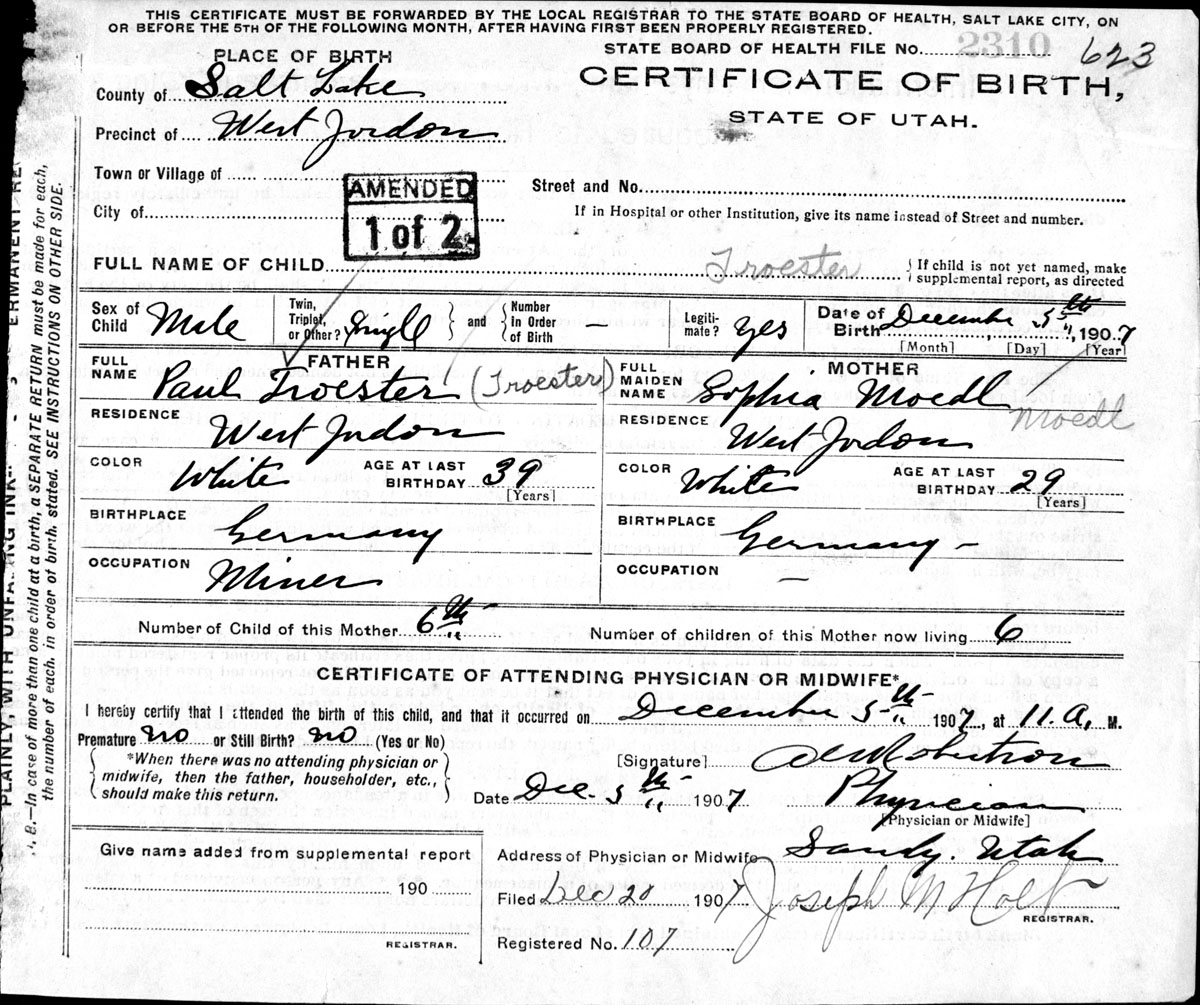 THIS CERTIFICATE MUST BE FORWARDED BY THE LOCAL REGISTRAR TO THE STATE BOARD OF HEALTH, SALT LAKE CITY, ON
OR BEFORE THE 5TH OF THE FOLLOWING MONTH, AFTER HAVING FIRST BEEN PROPERLY REGISTERED.
STATE BOARD OF HEALTH FILE No. 2310 623
PLACE OF BIRTH
CERTIFICATE OF BIRTH,
STATE OF UTAH.
County of Salt Lake
Precinct of West Jordon
Town or Village of
Street and No.
City of
AMENDED
1 of 2
If in Hospital or other Institution, give its name instead of Street and number.
FULL NAME OF CHILD Troester { If child is not yet named, make supplemental report, as directed
Sex of Child Male Twin, Triplet, or Other? Single { and } Number in Order of Birth — Legiti- mate? Yes Date of Birth December 5th, 1907
[Month] [Day] [Year]
FATHER
FULL NAME Paul Troester (Troester)
RESIDENCE West Jordon
COLOR White AGE AT LAST BIRTHDAY 39
[Years]
BIRTHPLACE Germany
OCCUPATION Miner
MOTHER
FULL MAIDEN NAME Sophia Moedl
Moedl
RESIDENCE West Jordon
COLOR White AGE AT LAST BIRTHDAY 29
[Years]
BIRTHPLACE Germany –
OCCUPATION —
Number of Child of this Mother 6th
Number of children of this Mother now living 6
CERTIFICATE OF ATTENDING PHYSICIAN OR MIDWIFE*
I hereby certify that I attended the birth of this child, and that it occurred on December 5th 1907, at 11.A. M.
Premature no or Still Birth? no (Yes or No)
*When there was no attending physician or
midwife, then the father, householder, etc.,
should make this return.
[Signature] Robertson
Date Dec. 5th 1907 Physician
[Physician or Midwife]
Give name added from supplemental report
190
REGISTRAR.
Address of Physician or Midwife Sandy. Utah
Filed Dec 20 1907 Joseph M Holt
REGISTRAR.
Registered No. 107
PLAINLY, WITH UNFADING INK
ERMANENT RE
B.—In case of more than one child at a birth, a SEPARATE RETURN must be made for each,
the number of each, in order of birth, stated. SEE INSTRUCTIONS ON OTHER SIDE.